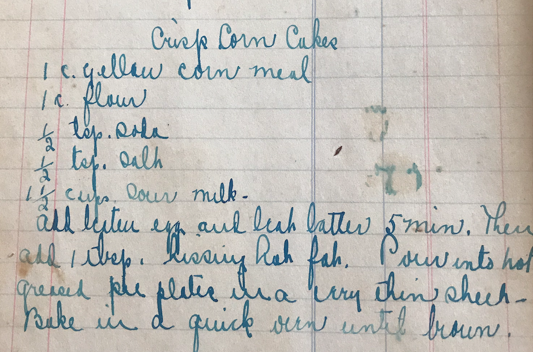 Crisp Corn Cakes
1 c. yellow corn meal
1 c. flour
1/2 tsp. soda
1/2 tsp. salt
1 1/2 cups sour milk.
Add beaten egg and beat batter 5 min. Then
add 1 tbsp. hissing hot fat. Pour into hot
greased pie plates in a very thin sheet -
Bake in a quick oven until brown.